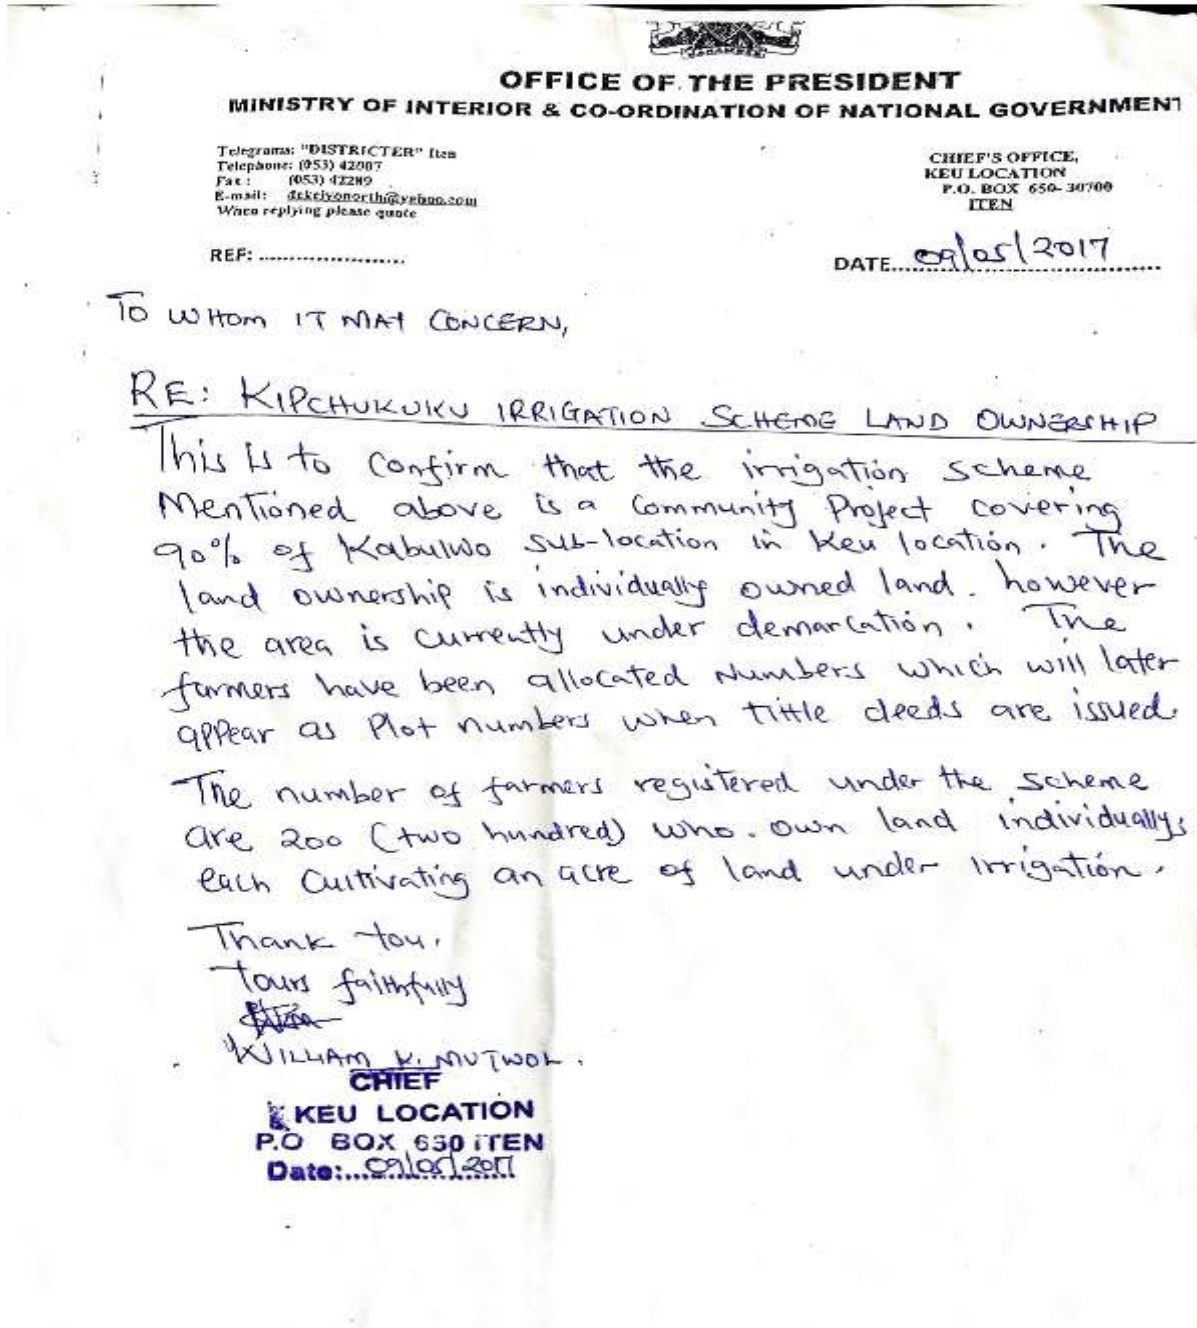 HARAMBEE
OFFICE OF THE PRESIDENT
MINISTRY OF INTERIOR & CO-ORDINATION OF NATIONAL GOVERNMENT
Telegrams: "DISTRICTER" Iten
Telephone: (053) 42007
Fax : (053) 42289
E-mail: dckeiyonorth@yahoo.com
When replying please quote
CHIEF'S OFFICE,
KEU LOCATION
P.O. BOX 650-30700
ITEN
REF: ......................
DATE 09/05/2017
TO WHOM IT MAY CONCERN,
RE: KIPCHUKUKU IRRIGATION SCHEME LAND OWNERSHIP
This is to confirm that the irrigation scheme
Mentioned above is a Community Project covering
90% of Kabulwo sub-location in Keu location. The
land ownership is individually owned land. however
the area is currently under demarcation. The
farmers have been allocated Numbers which will later
appear as Plot numbers when tittle deeds are issued.
The number of farmers registered under the scheme
are 200 (two hundred) who own land individually,
each Cultivating an acre of land under irrigation.
Thank You.
Yours faithfully
WILLIAM K. MUTWOL.
CHIEF
KEU LOCATION
P.O BOX 650 ITEN
Date:....09/05/2017